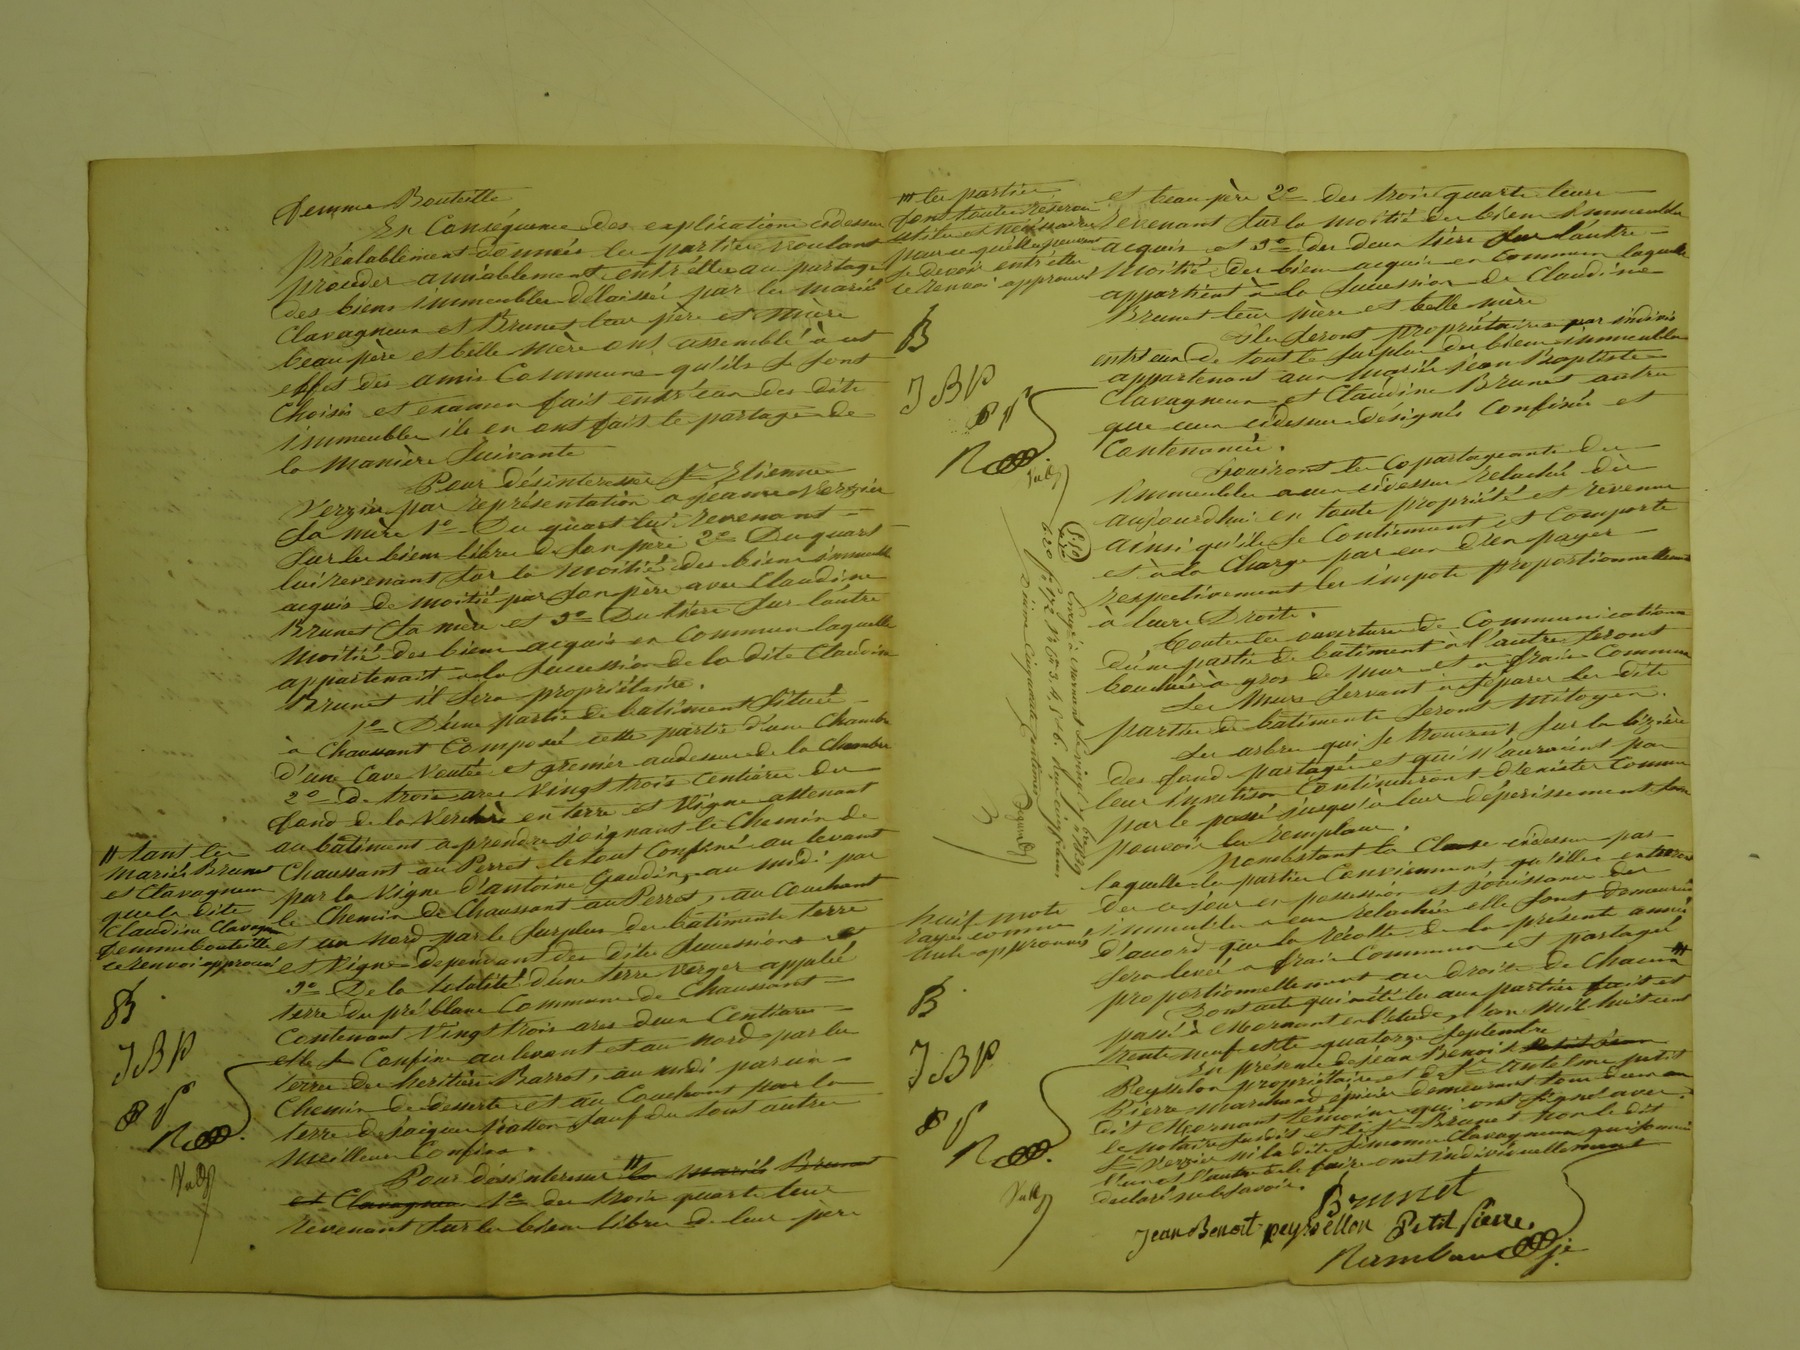 femme Bouteille
En Conséquence des explications cidessus
préalablement données les parties voulant
procéder amiablement entr'elles au partage
des biens immeubles délaissés par les mariés
Clavagneux et Brunet leur père et mère
beau père et belle mère ont assemblé à cet
effet des amis Communs qu'ils se sont
Choisis et examen fait entr'eux des dits
immeubles ils en ont fait le partage de
la manière suivante
Pour désintéresser Sr Etienne
Verzier par représentation a jeanne Verzier
sa mère 1o Du quart lui revenant
sur les biens libres de son père 2o Du quart
lui revenant sur la moitié des biens immeubles
acquis de moitié par son père avec Claudine
Brunet sa mère et 3o Du tière sur l'autre
moitié des biens acquis en Commun laquelle
appartenait a la succession de la dite Claudine
Brunet il sera propriétaire.
1o D'une partie de batiment situé
à Chaussant Composée cette partie d'une Chambre
d'une Cave voutée et grenier audessus de la Chambre
2o De trois ares vingt trois Centiares du
fond de la Verchère en terre et vigne attenant
au bâtiment a prendre joignant le Chemin de
Chaussant au Perret le tout Confiné au levant
par la vigne d'antoine Gaudin, au midi par
le Chemin de Chaussant au Perret, au Couchant
et au nord par le surplus des bâtiments terre
et vigne dépendant des dites successions et
3o De la totalité d'une terre verger appelé
terre du pré blanc Commune de Chaussant
Contenant vingt trois ares deux Centiares
elle se Confine au levant et au nord par les
terres des heritiers Barrot, au midi par un
Chemin de desserte et au Couchant par la
terre de jacques sauf du tout autres
meilleurs Confins.
Pour désintéresser # les mariés Brunet
et Clavagneux 1o des trois quarts leur
revenant sur les biens libres de leur père
# tant les
mariés Brunet
et Clavagneux
que la dite
Claudine Clavagneux
femme bouteille
ce renvoi approuvé
B
JBP
P
R
# les parties
font toutes réserves
utiles et nécessaires
pour ce qu'elles peuvent
se devoir entr'elles
ce renvoi approuvé
B
JBP
P
R
et beau père 2o des trois quarts leur
revenant sur la moitié des biens immeubles
acquis et 3o des deux tières sur l'autre
moitié des biens acquis en Commun laquelle
appartient à la succession de Claudine
Brunet leur mère et belle mère
ils seront propriétaires par indivis
entr'eux de tout le surplus des biens immeubles
appartenant aux mariés jean Baptiste
Clavagneux et Claudine Brunet autres
que ceux cidessus désignés Confinés et
Contenancés.
Jouiront les Copartageants des
immeubles a eux cidessus relachés dès
aujourdhui en toute propriété et revenus
ainsi qu'ils se Contiennent et Comporte
et à la Charge par eux d'en payer
respectivement les impots proportionnellement
à leurs Droits.
Toutes les ouvertures de Communication
d'une partie de batiment à l'autre seront
bouchées à gros de mur et a frais Communs
Les murs servant à séparer les dites
parties de batiments seront mitoyens.
Les arbres qui se trouvent sur la lizière
des fonds partagés et qui n'auraient pas
leur invetison Continueront d'exister Comme
par le passé jusqu'a leur déperissement sans
pouvoir les remplacer.
Nonobstant la Clause cidessus par
laquelle les parties Conviennent qu'elles entreront
dès ce jour en possession et jouissance des
immeubles a eux relachés elles sont demeurées
d'accord que la récolte de la présente année
sera levée a frais Communs et partagée
proportionnellement aux droits de Chacun #
Dont acte qui a été lu aux parties fait et
passé à Mornant en l'étude, l'an mil huit cent
trente neuf et le quatorze septembre
En présence de jean Benoit
Peyssellon propriétaire et de Sr antelme petit
Pierre marchand épicier demeurant tous deux au
dit Mornant témoins qui ont signé avec
le notaire susdit et le Sr Brunet non le dit
Sr Verzier ni la dite Simonne Clavagneux qui
l'un et l'autre de le faire ont individuellement
declaré ne le savoir.
Brunet
Jean Benoit peyssellon Petit Pierre
Rambaud
huit mots
rayés comme
nuls approuvés
B
JBP
P
R